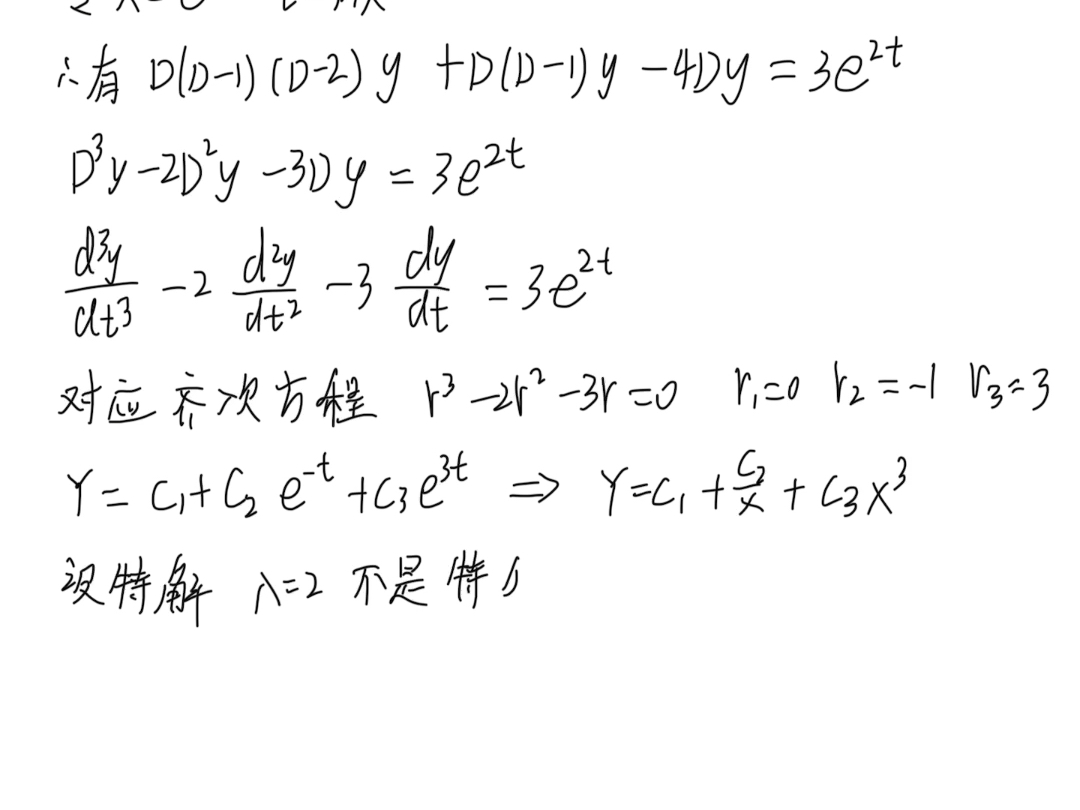 ∴有 D(D-1)(D-2)y +D(D-1)y -4Dy = 3e^{2t}
D³y-2D²y-3Dy = 3e^{2t}
d³y/dt³ -2 d²y/dt² -3 dy/dt = 3e^{2t}
对应齐次方程 r³-2r²-3r=0 r₁=0 r₂=-1 r₃=3
Y= C₁+C₂e^{-t}+C₃e^{3t} ⇒ Y=C₁+C₂/x+C₃x³
设特解 λ=2 不是特